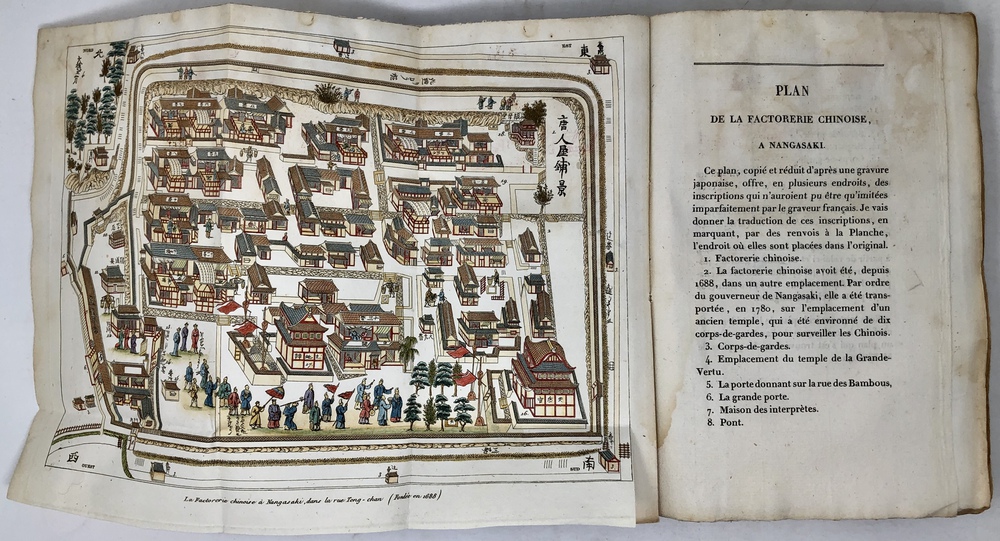 NORD
北
EST
東
唐人屋鋪景
16.
西
OUEST
SUD
南
La Factorerie chinoise à Nangasaki, dans la rue Tong-chan (Fondée en 1688)
PLAN
DE LA FACTORERIE CHINOISE,
A NANGASAKI.
Ce plan, copié et réduit d'après une gravure
japonaise, offre, en plusieurs endroits, des
inscriptions qui n'auroient pu être qu'imitées
imparfaitement par le graveur français. Je vais
donner la traduction de ces inscriptions, en
marquant, par des renvois à la Planche,
l'endroit où elles sont placées dans l'original.
1. Factorerie chinoise.
2. La factorerie chinoise avoit été, depuis
1688, dans un autre emplacement. Par ordre
du gouverneur de Nangasaki, elle a été trans-
portée, en 1780, sur l'emplacement d'un
ancien temple, qui a été environné de dix
corps-de-gardes, pour surveiller les Chinois.
3. Corps-de-gardes.
4. Emplacement du temple de la Grande-
Vertu.
5. La porte donnant sur la rue des Bambous,
6. La grande porte.
7. Maison des interprètes.
8. Pont.